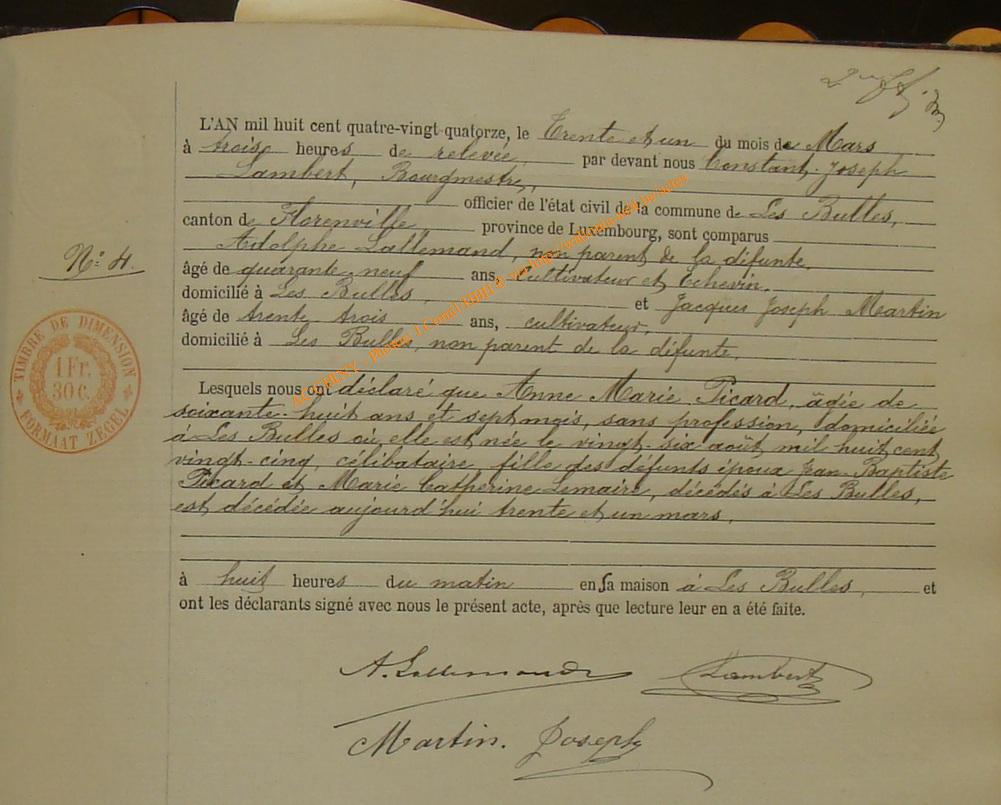 L'AN mil huit cent quatre-vingt-quatorze, le Trente et un du mois de Mars
à trois heures de relevée, par devant nous Constant-Joseph
Lambert, Bourgmestre,
officier de l'état civil de la commune de Les Bulles,
canton de Florenville province de Luxembourg, sont comparus
Adolphe Lallemand, non parent de la défunte,
N° 4.
âgé de quarante-neuf ans, Cultivateur et Echevin,
domicilié à Les Bulles, et Jacques Joseph Martin
âgé de trente trois ans, cultivateur,
domicilié à Les Bulles, non parent de la défunte.
TIMBRE DE DIMENSION
1 Fr.
30 c.
FORMAAT ZEGEL
Lesquels nous ont déclaré que Anne Marie Picard, âgée de
soixante-huit ans et sept mois, sans profession, domiciliée
à Les Bulles où elle est née le vingt-six août mil huit cent
vingt-cinq, célibataire, fille des défunts époux Jean-Baptiste
Picard et Marie Catherine Lemaire, décédés à Les Bulles,
est décédée aujourd'hui trente et un mars,
à huit heures du matin en sa maison à Les Bulles, et
ont les déclarants signé avec nous le présent acte, après que lecture leur en a été faite.
A. Lallemand Lambert
Martin. Joseph